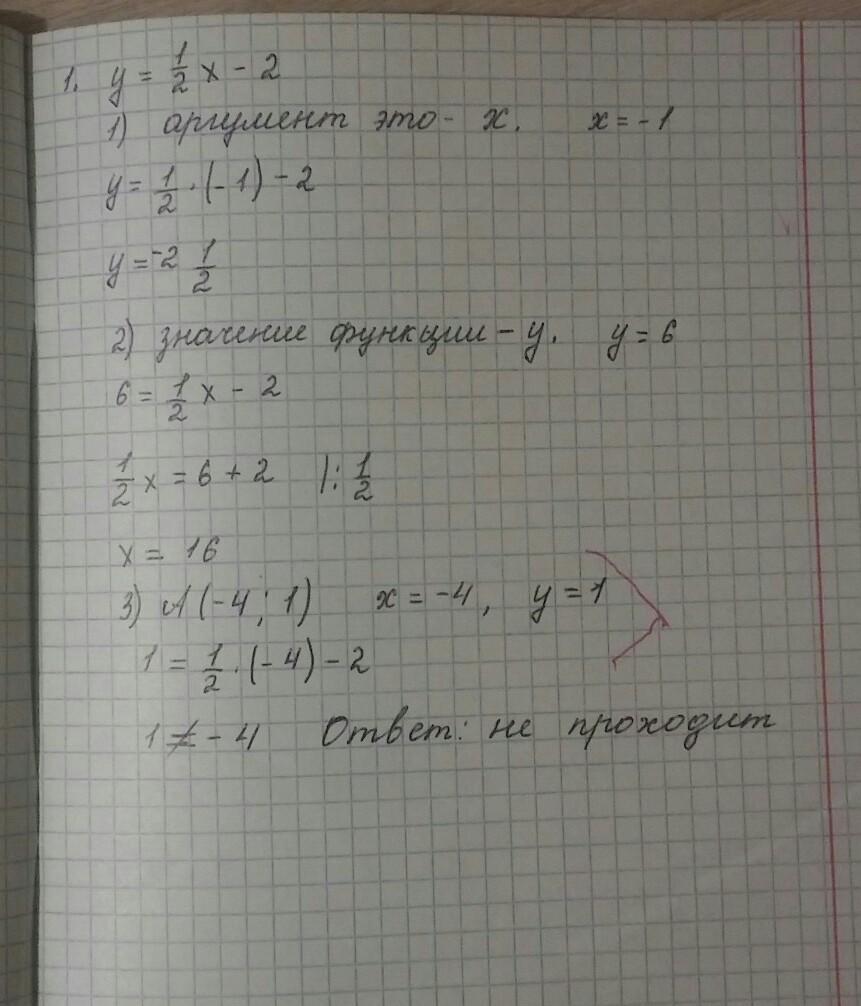 1. y = 1/2 x - 2
1) аргумент это - x. x = -1
y = 1/2 · (-1) - 2
y = -2 1/2
2) значение функции - y. y = 6
6 = 1/2 x - 2
1/2 x = 6 + 2 |: 1/2
x = 16
3) A (-4; 1) x = -4, y = 1
1 = 1/2 · (-4) - 2
1 ≠ -4 Ответ: не проходит